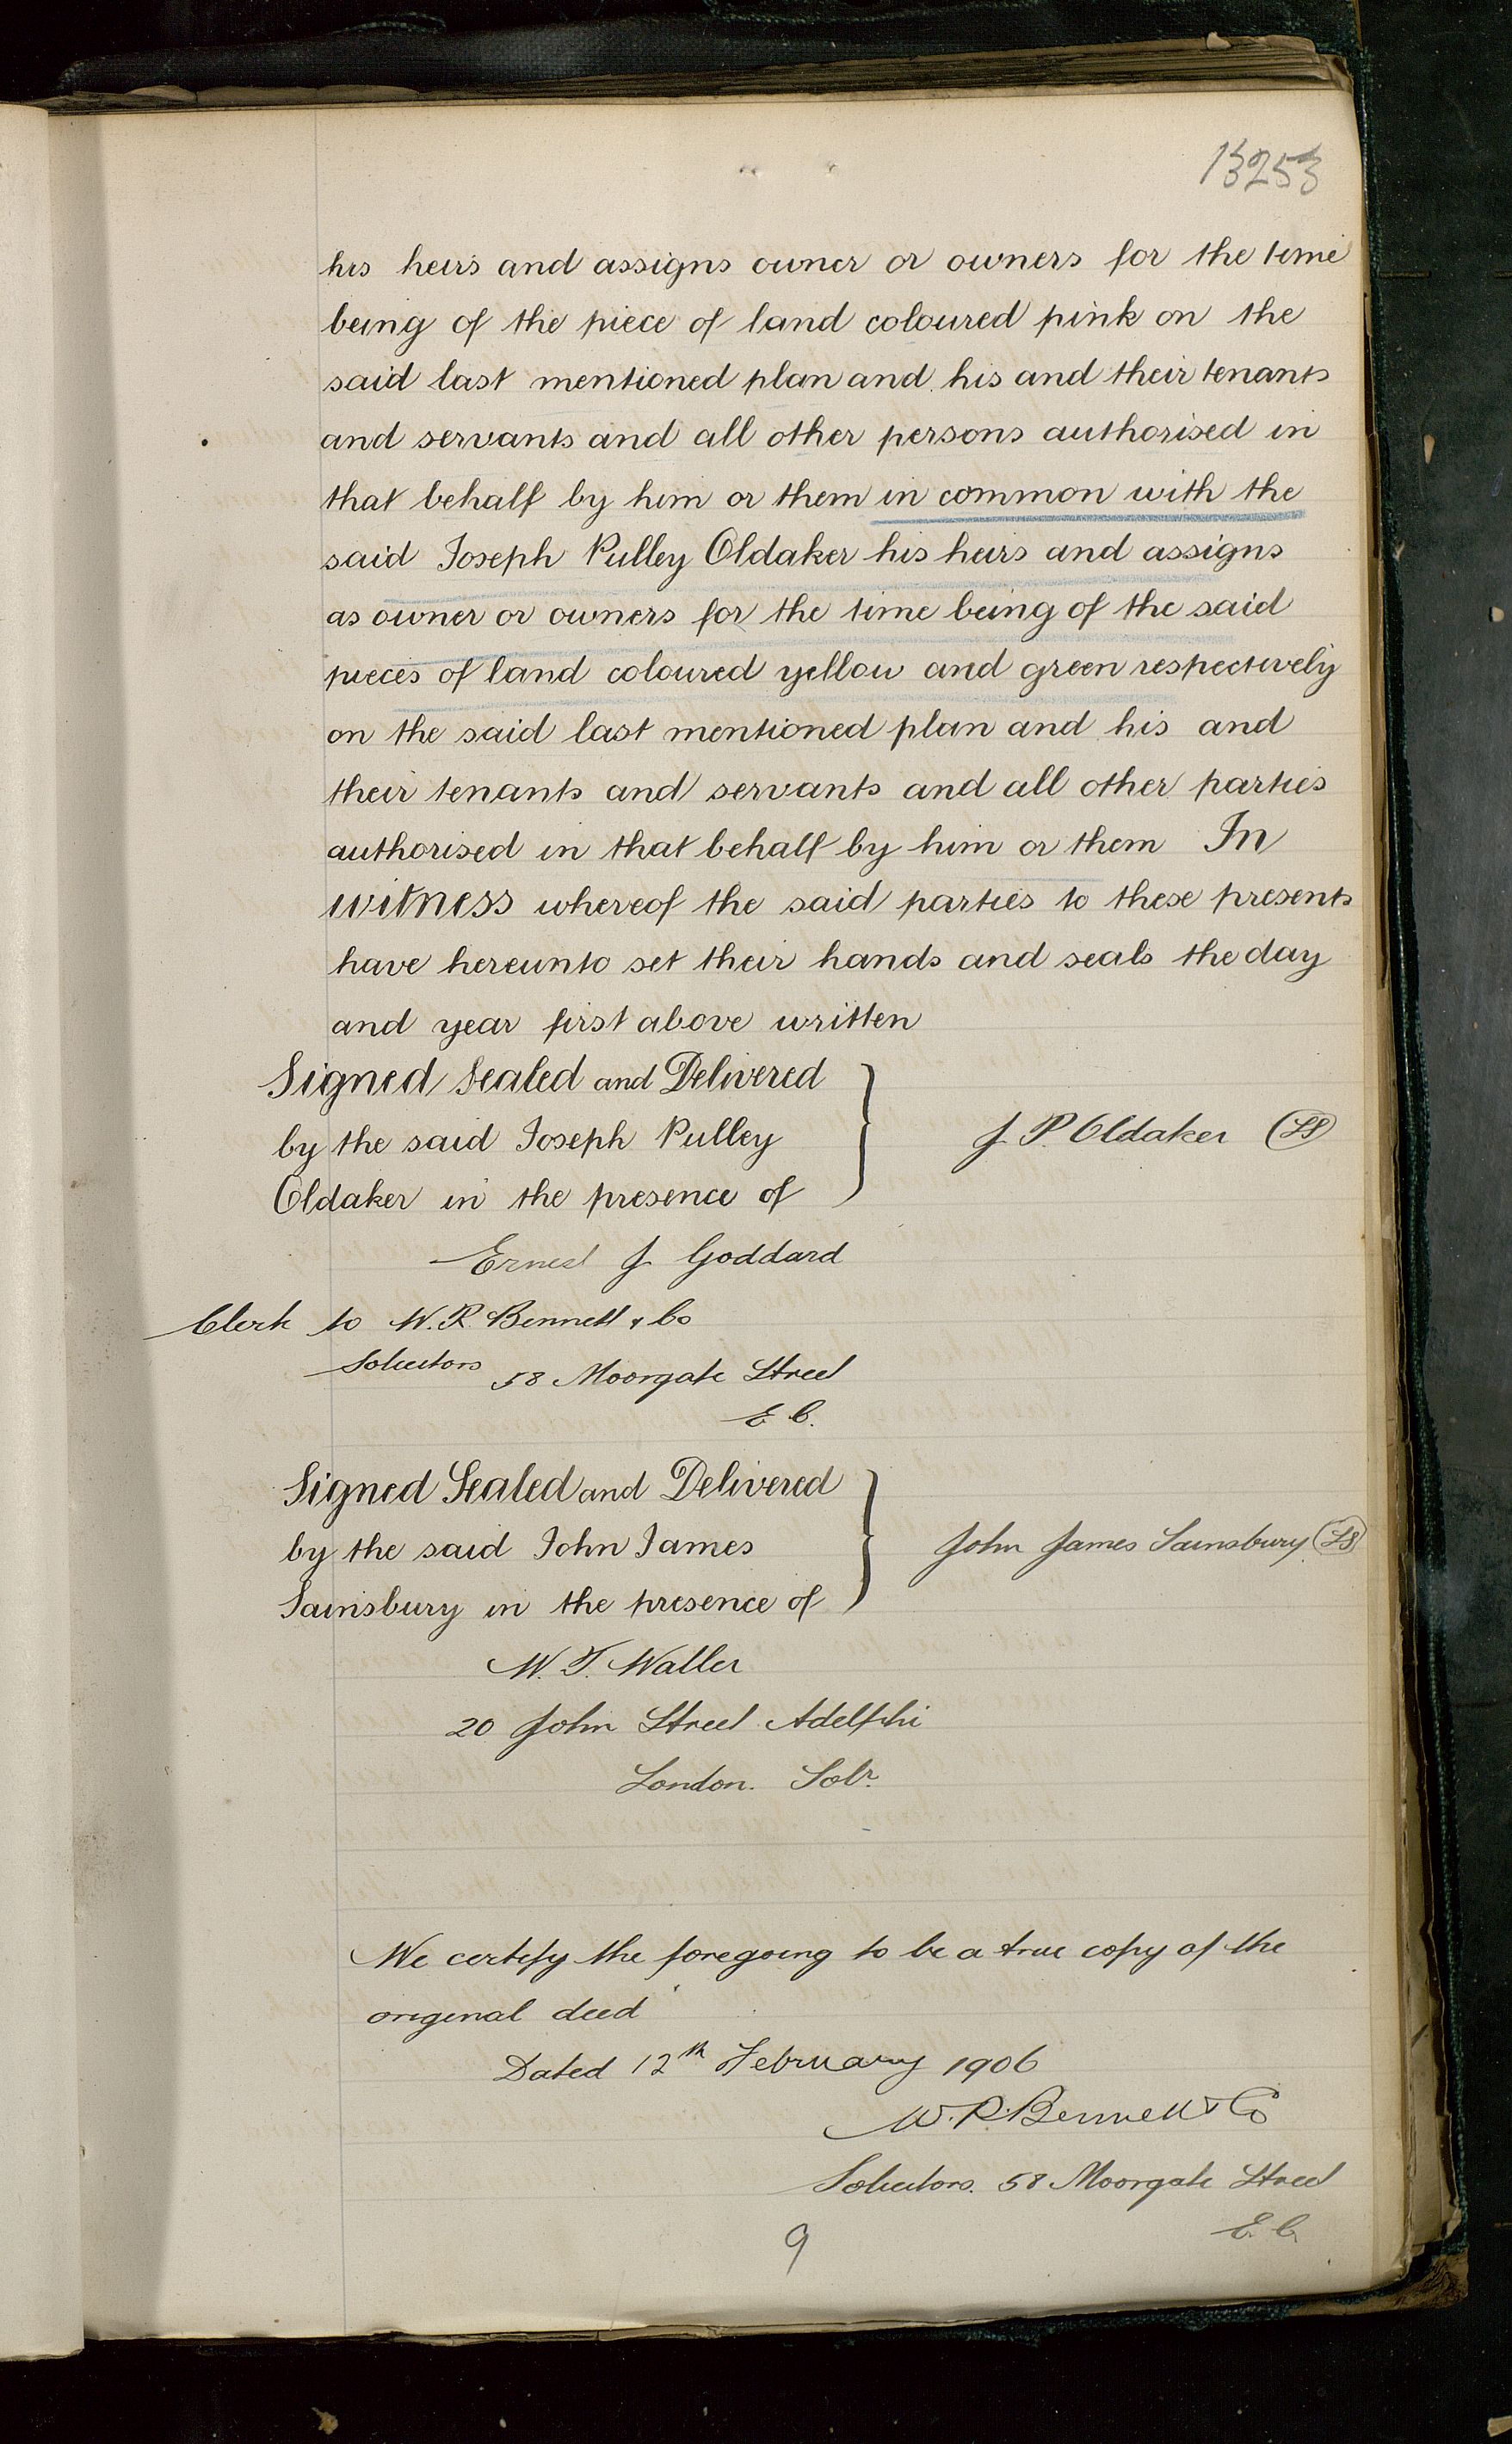 13253
his heirs and assigns owner or owners for the time
being of the piece of land coloured pink on the
said last mentioned plan and his and their tenants
and servants and all other persons authorised in
that behalf by him or them in common with the
said Joseph Pulley Oldaker his heirs and assigns
as owner or owners for the time being of the said
pieces of land coloured yellow and green respectively
on the said last mentioned plan and his and
their tenants and servants and all other parties
authorised in that behalf by him or them In
witness whereof the said parties to these presents
have hereunto set their hands and seals the day
and year first above written
Signed Sealed and Delivered
by the said Joseph Pulley
Oldaker in the presence of
J. P. Oldaker LS
Ernest J Goddard
Clerk to W. R. Bennett & Co
Solicitors 58 Moorgate Street
E C.
Signed Sealed and Delivered
by the said John James
Sainsbury in the presence of
John James Sainsbury LS
W. T. Waller
20 John Street Adelphi
London. Solr.
We certify the foregoing to be a true copy of the
original deed
Dated 12th February 1906
W. R. Bennett & Co
Solicitors. 58 Moorgate Street
E. C.
9